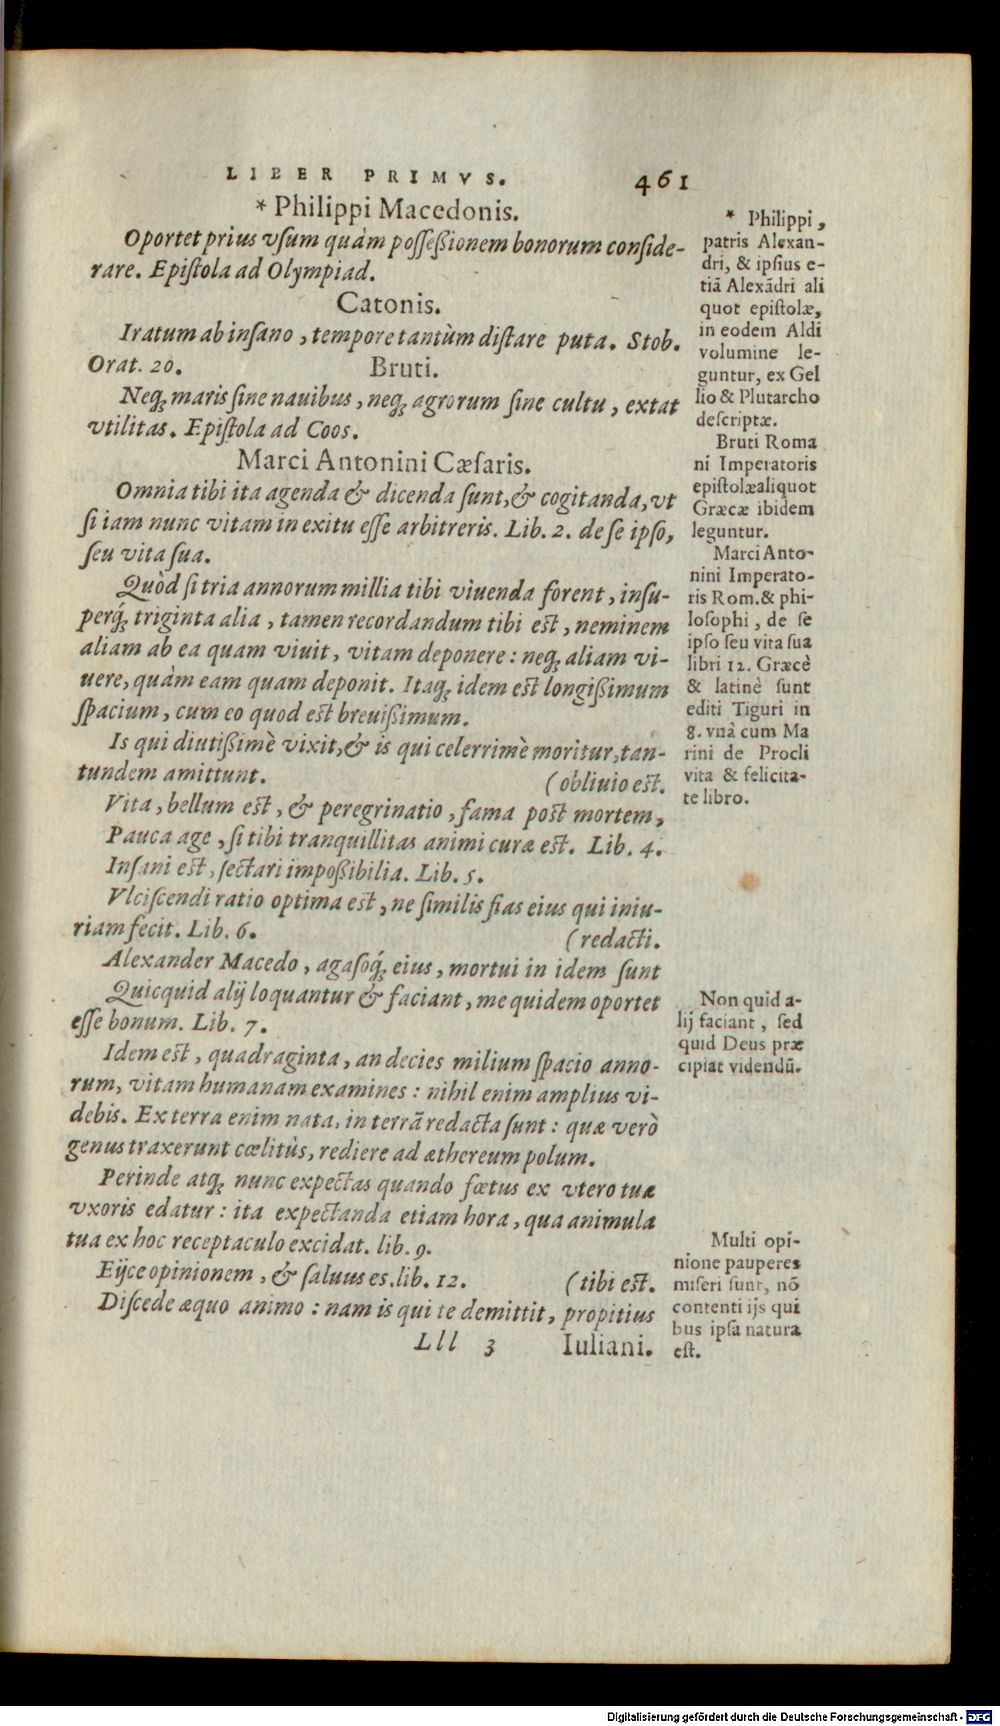 LIBER PRIMVS. 461
* Philippi Macedonis.
Oportet prius vsum quàm possessionem bonorum conside-
rare. Epistola ad Olympiad.
Catonis.
Iratum ab insano, tempore tantùm distare puta. Stob.
Orat. 20. Bruti.
Neq; maris sine nauibus, neq; agrorum sine cultu, extat
vtilitas. Epistola ad Coos.
Marci Antonini Cæsaris.
Omnia tibi ita agenda & dicenda sunt, & cogitanda, vt
si iam nunc vitam in exitu esse arbitreris. Lib. 2. de se ipso,
seu vita sua.
Quòd si tria annorum millia tibi viuenda forent, insu-
perq́; triginta alia, tamen recordandum tibi est, neminem
aliam ab ea quam viuit, vitam deponere: neq; aliam vi-
uere, quàm eam quam deponit. Itaq; idem est longißimum
spacium, cum eo quod est breuißimum.
Is qui diutißimè vixit, & is qui celerrimè moritur, tan-
tundem amittunt. (obliuio est.
Vita, bellum est, & peregrinatio, fama post mortem,
Pauca age, si tibi tranquillitas animi curæ est. Lib. 4.
Insani est, sectari impoßibilia. Lib. 5.
Vlciscendi ratio optima est, ne similis fias eius qui iniu-
riam fecit. Lib. 6. (redacti.
Alexander Macedo, agasoq́; eius, mortui in idem sunt
Quicquid alij loquantur & faciant, me quidem oportet
esse bonum. Lib. 7.
Idem est, quadraginta, an decies milium spacio anno-
rum, vitam humanam examines: nihil enim amplius vi-
debis. Ex terra enim nata, in terrã redacta sunt: quæ verò
genus traxerunt cœlitùs, rediere ad æthereum polum.
Perinde atq; nunc expectas quando fœtus ex vtero tuæ
vxoris edatur: ita expectanda etiam hora, qua animula
tua ex hoc receptaculo excidat. lib. 9.
Eijce opinionem, & saluus es. lib. 12. (tibi est.
Discede æquo animo: nam is qui te demittit, propitius
Lll 3 Iuliani.
* Philippi,
patris Alexan-
dri, & ipsius e-
tiã Alexãdri ali
quot epistolæ,
in eodem Aldi
volumine le-
guntur, ex Gel
lio & Plutarcho
descriptæ.
Bruti Roma
ni Imperatoris
epistolæaliquot
Græcæ ibidem
leguntur.
Marci Anto-
nini Imperato-
ris Rom. & phi-
losophi, de se
ipso seu vita sua
libri 12. Græcè
& latinè sunt
editi Tiguri in
8. vnà cum Ma
rini de Procli
vita & felicita-
te libro.
Non quid a-
lij faciant, sed
quid Deus præ
cipiat videndũ.
Multi opi-
nione pauperes
miseri sunt, nõ
contenti ijs qui
bus ipsa natura
est.
Digitalisierung gefördert durch die Deutsche Forschungsgemeinschaft - DFG